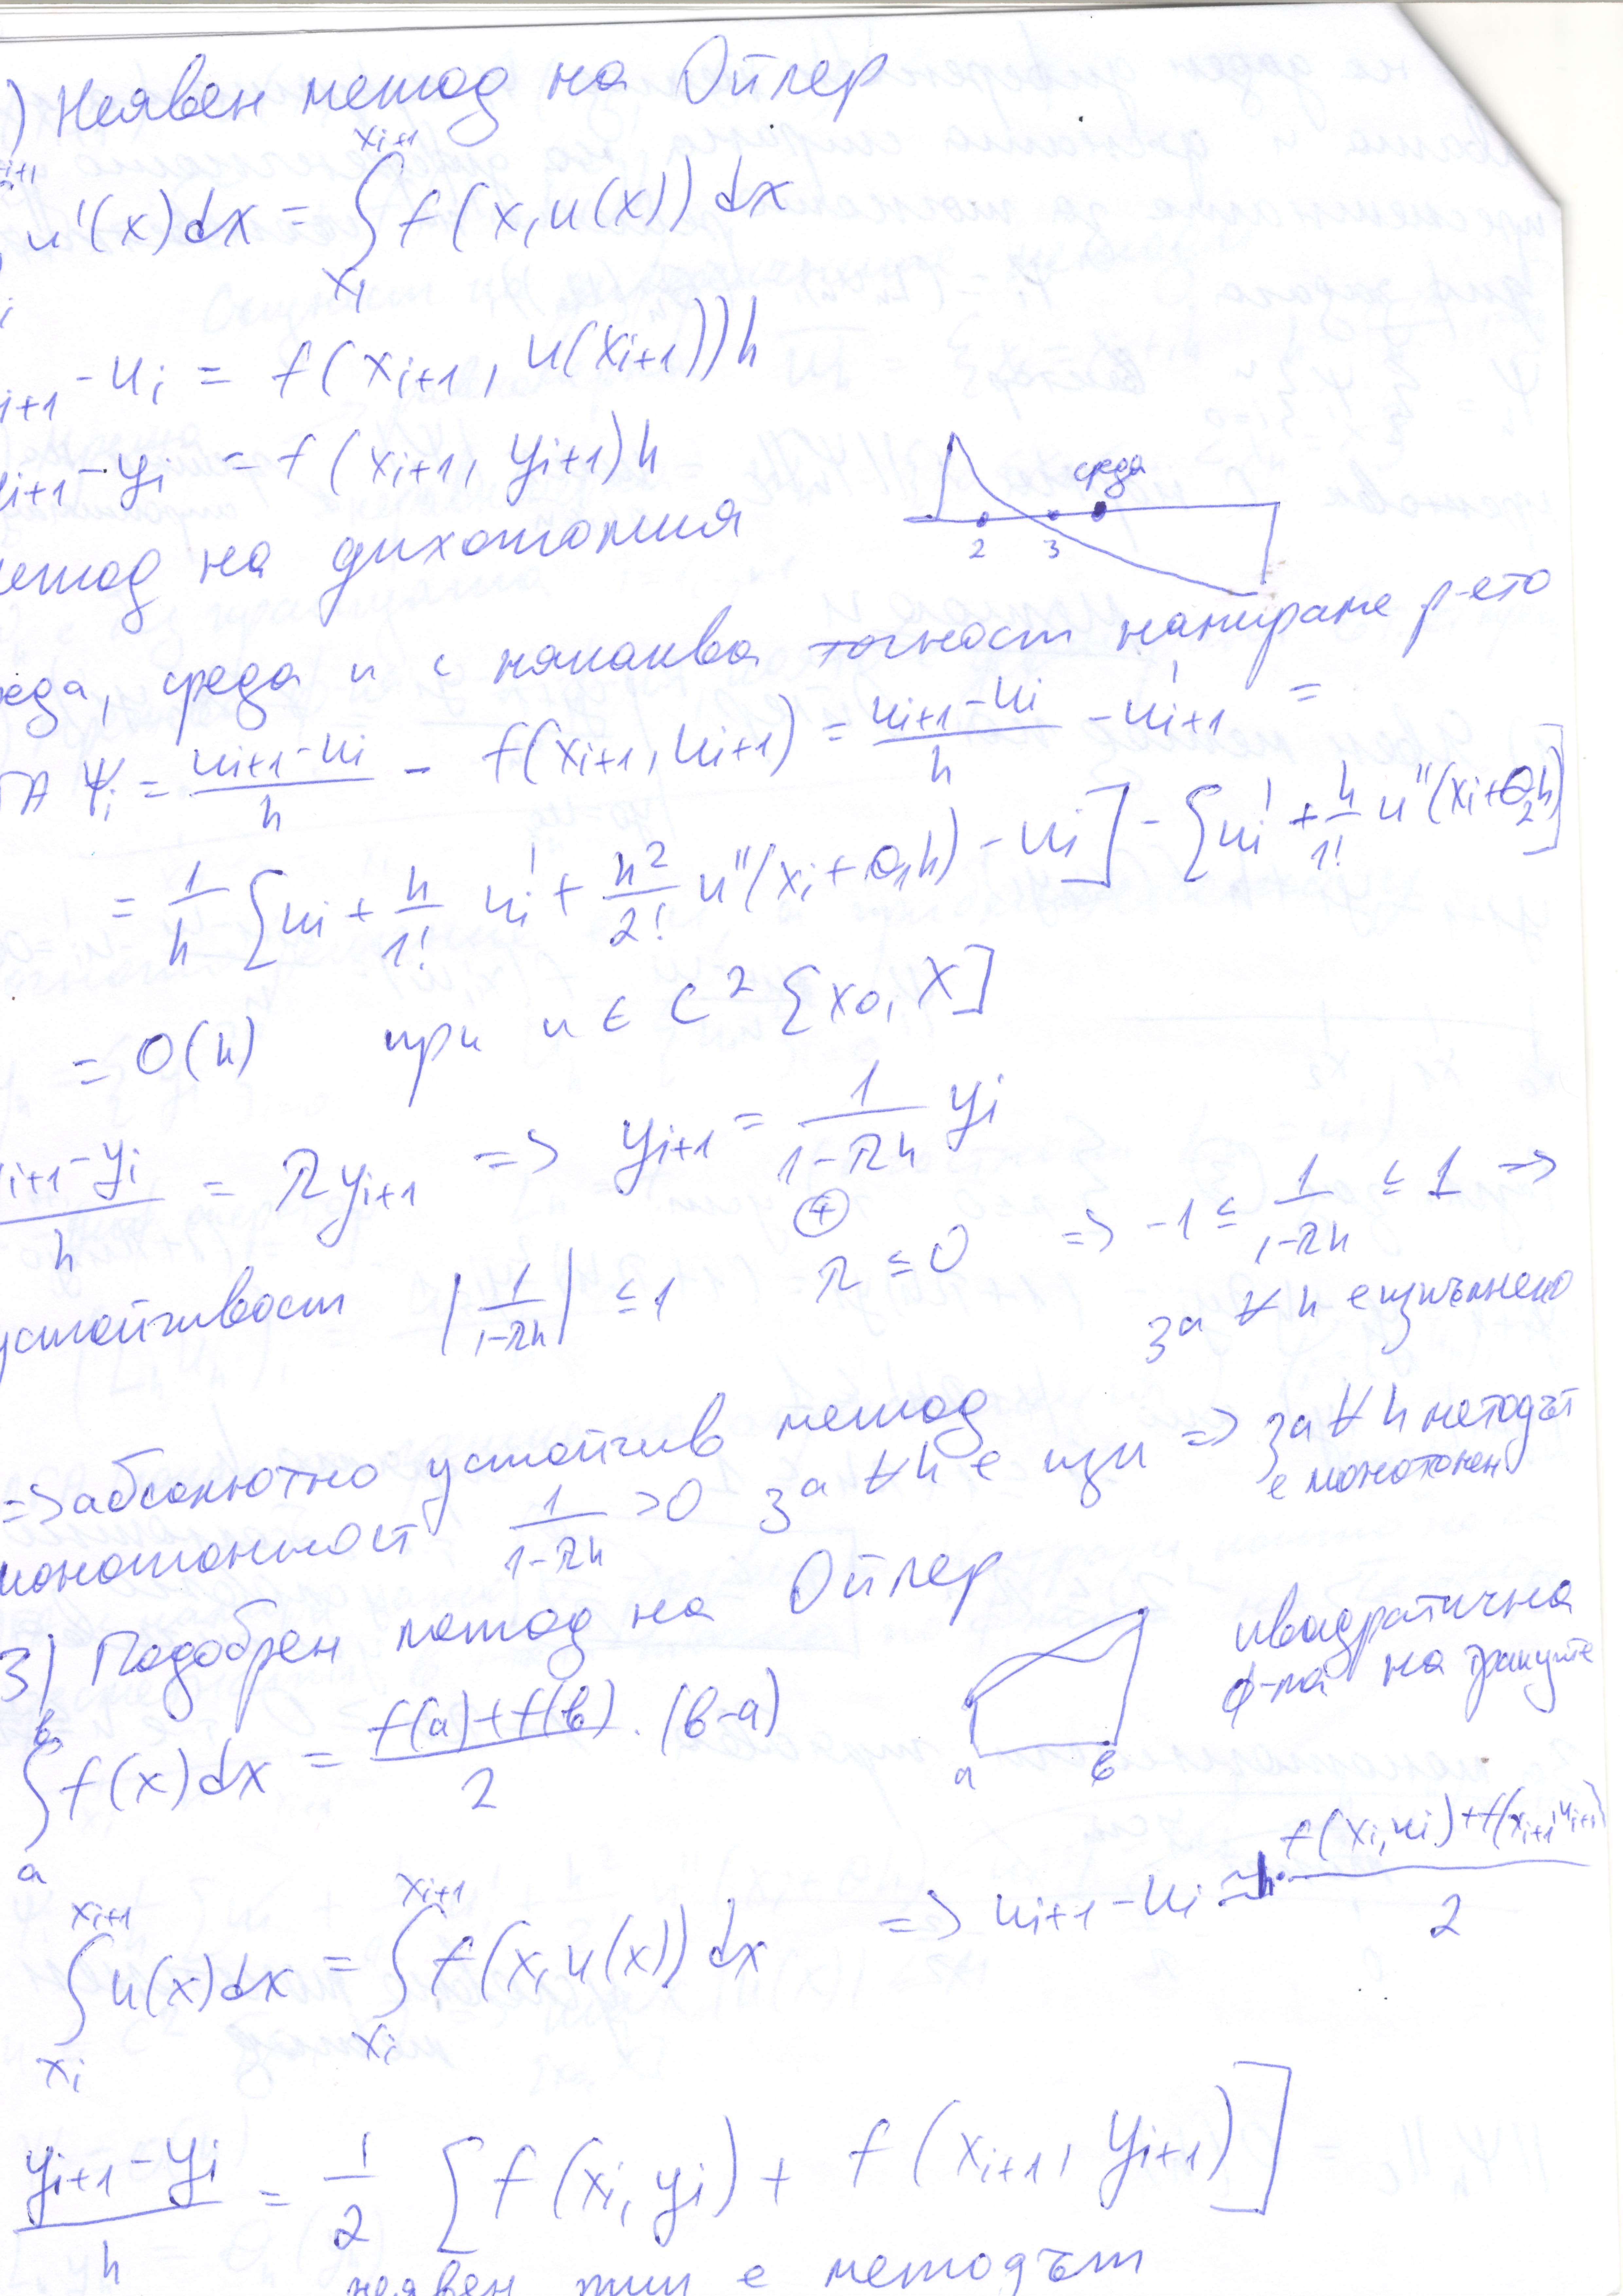 ) Неявен метод на Ойлер
i+1 u'(x)dx = ∫ xi xi+1 f(x, u(x)) dx
i+1 - ui = f(xi+1, u(xi+1))h
yi+1 - yi = f(xi+1, yi+1)h
среда
2 3
метод на дихотомия
еда, среда и с някаква точност намираме р-ето
ГА Ψi = (ui+1 - ui)/h - f(xi+1, ui+1) = (ui+1 - ui)/h - u'i+1 =
= 1/h [ui + h/1! ui' + h²/2! u''(xi + θ1h) - ui] - [ui' + h/1! u''(xi + θ2h)]
= O(h) при u ∈ C² [x0, X]
(yi+1 - yi)/h = λyi+1 => yi+1 = 1/(1-λh) yi
+
устойчивост |1/(1-λh)| ≤ 1 λ ≤ 0 => -1 ≤ 1/(1-λh) ≤ 1 =>
за ∀ h е изпълнено
=> абсолютно устойчив метод
монотонност 1/(1-λh) >0 за ∀h е изп => за ∀ h методът
е монотонен
3) Подобрен метод на Ойлер
∫ a в f(x)dx = (f(a)+f(в))/2 . (в-a)
a в
квадратична
ф-ла на трапците
∫ xi xi+1 u(x)dx = ∫ xi xi+1 f(x, u(x)) dx => ui+1 - ui ≈ h . (f(xi, ui) + f(xi+1, ui+1))/2
(yi+1 - yi)/h = 1/2 [f(xi, yi) + f(xi+1, yi+1)]
неявен тип е методът